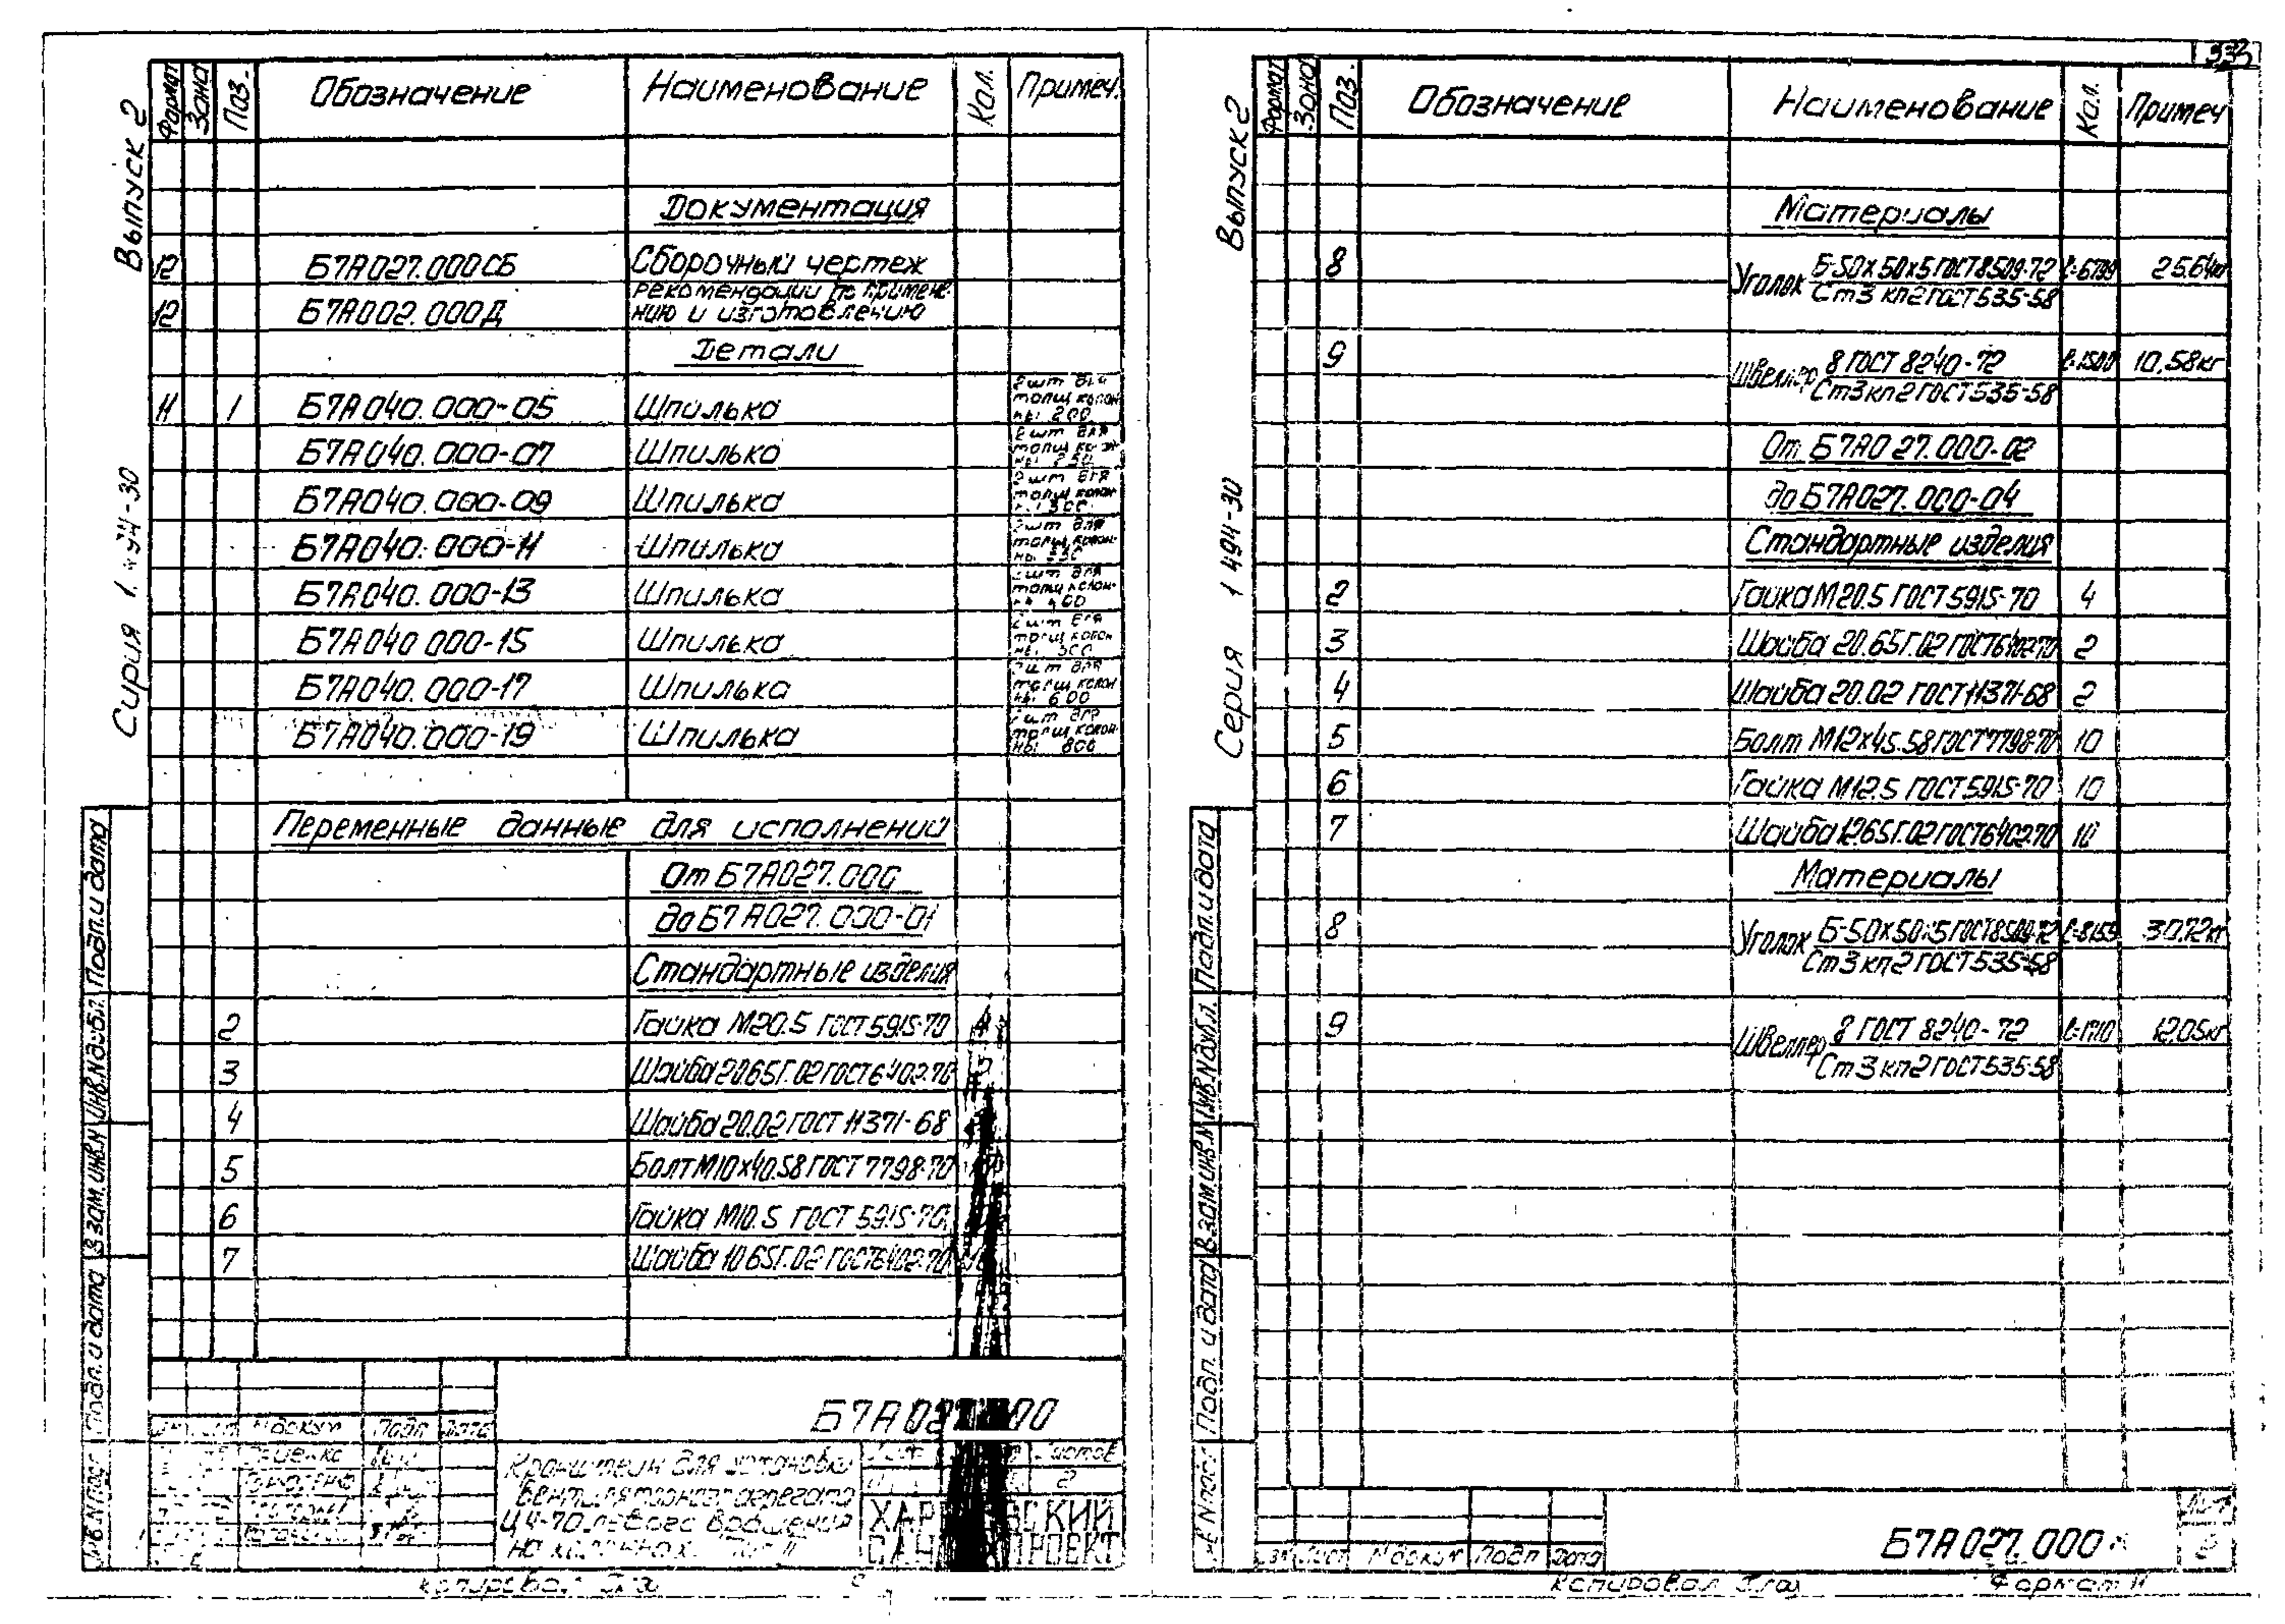 Выпуск 2
Формат Зона Поз. Обозначение Наименование Кол. Примеч.
Документация
12 Б7А027.000СБ Сборочный чертеж
12 Б7А002.000Д рекомендации по примене-
нию и изготовлению
Детали
11 1 Б7А040.000-05 Шпилька 2шт для
толщ колон
ны 200
Б7А040.000-07 Шпилька 2шт для
толщ
ны 250
Б7А040.000-09 Шпилька 2шт для
толщ колон
300
Б7А040.000-11 Шпилька 2шт для
толщ колон-
ны
Б7А040.000-13 Шпилька шт для
толщ колон-
400
Б7А040 000-15 Шпилька шт для
толщ колон
ны
Б7А040.000-17 Шпилька шт для
толщ колон
ны 600
Б7А040.000-19 Шпилька шт для
толщ колон
ны 800
Переменные данные для исполнений
От Б7А027.000
до Б7А027.000-01
Стандартные изделия
2 Гайка М20.5 ГОСТ 5915-70
3 Шайба 20.65Г.02 ГОСТ 6402-70
4 Шайба 20.02 ГОСТ 11371-68
5 Болт М10х40.58 ГОСТ 7798-70
6 Гайка М10.5 ГОСТ 5915-70
7 Шайба 10 65Г.02 ГОСТ 6402-70
Серия 1.494-30
Подп. и дата
Инв. N дубл.
Взам. инв. N
Подп. и дата
N докум Подп Дата
Б7А027.000
Кронштейн для установки
вентиляторного агрегата
Ц4-70 левого вращения
на колоннах. Тип II
Листов
2
копировал
Выпуск 2
Формат Зона Поз. Обозначение Наименование Кол. Примеч
Материалы
8 Уголок Б-50х50х5 ГОСТ 8509-72 ℓ=6799 25.64кг
Ст3 кп2 ГОСТ 535-58
9 Швеллер 8 ГОСТ 8240-72 ℓ=1500 10,58кг
Ст3 кп2 ГОСТ 535-58
От Б7А027.000-02
до Б7А027.000-04
Стандартные изделия
2 Гайка М20.5 ГОСТ 5915-70 4
3 Шайба 20.65Г.02 ГОСТ 6402-70 2
4 Шайба 20.02 ГОСТ 11371-68 2
5 Болт М12х45.58 ГОСТ 7798-70 10
6 Гайка М12.5 ГОСТ 5915-70 10
7 Шайба 12.65Г.02 ГОСТ 6402-70 10
Материалы
8 Уголок Б-50х50х5 ГОСТ 8509-72 ℓ=8155 30.72кг
Ст3 кп2 ГОСТ 535-58
9 Швеллер 8 ГОСТ 8240-72 ℓ=1710 12.05кг
Ст3 кп2 ГОСТ 535-58
Серия 1 494-30
Подп. и дата
Инв. N дубл.
Взам. инв. N
Подп. и дата
Лист N докум Подп Дата
Б7А027.000
Лист
2
Копировал
Формат 11